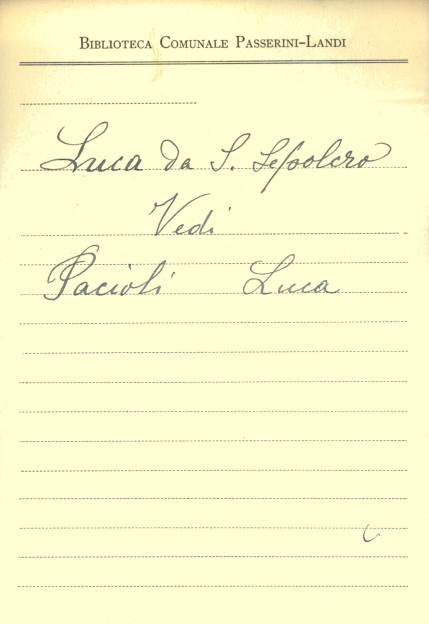 BIBLIOTECA COMUNALE PASSERINI-LANDI
Luca da S. Sepolcro
Vedi
Pacioli Luca